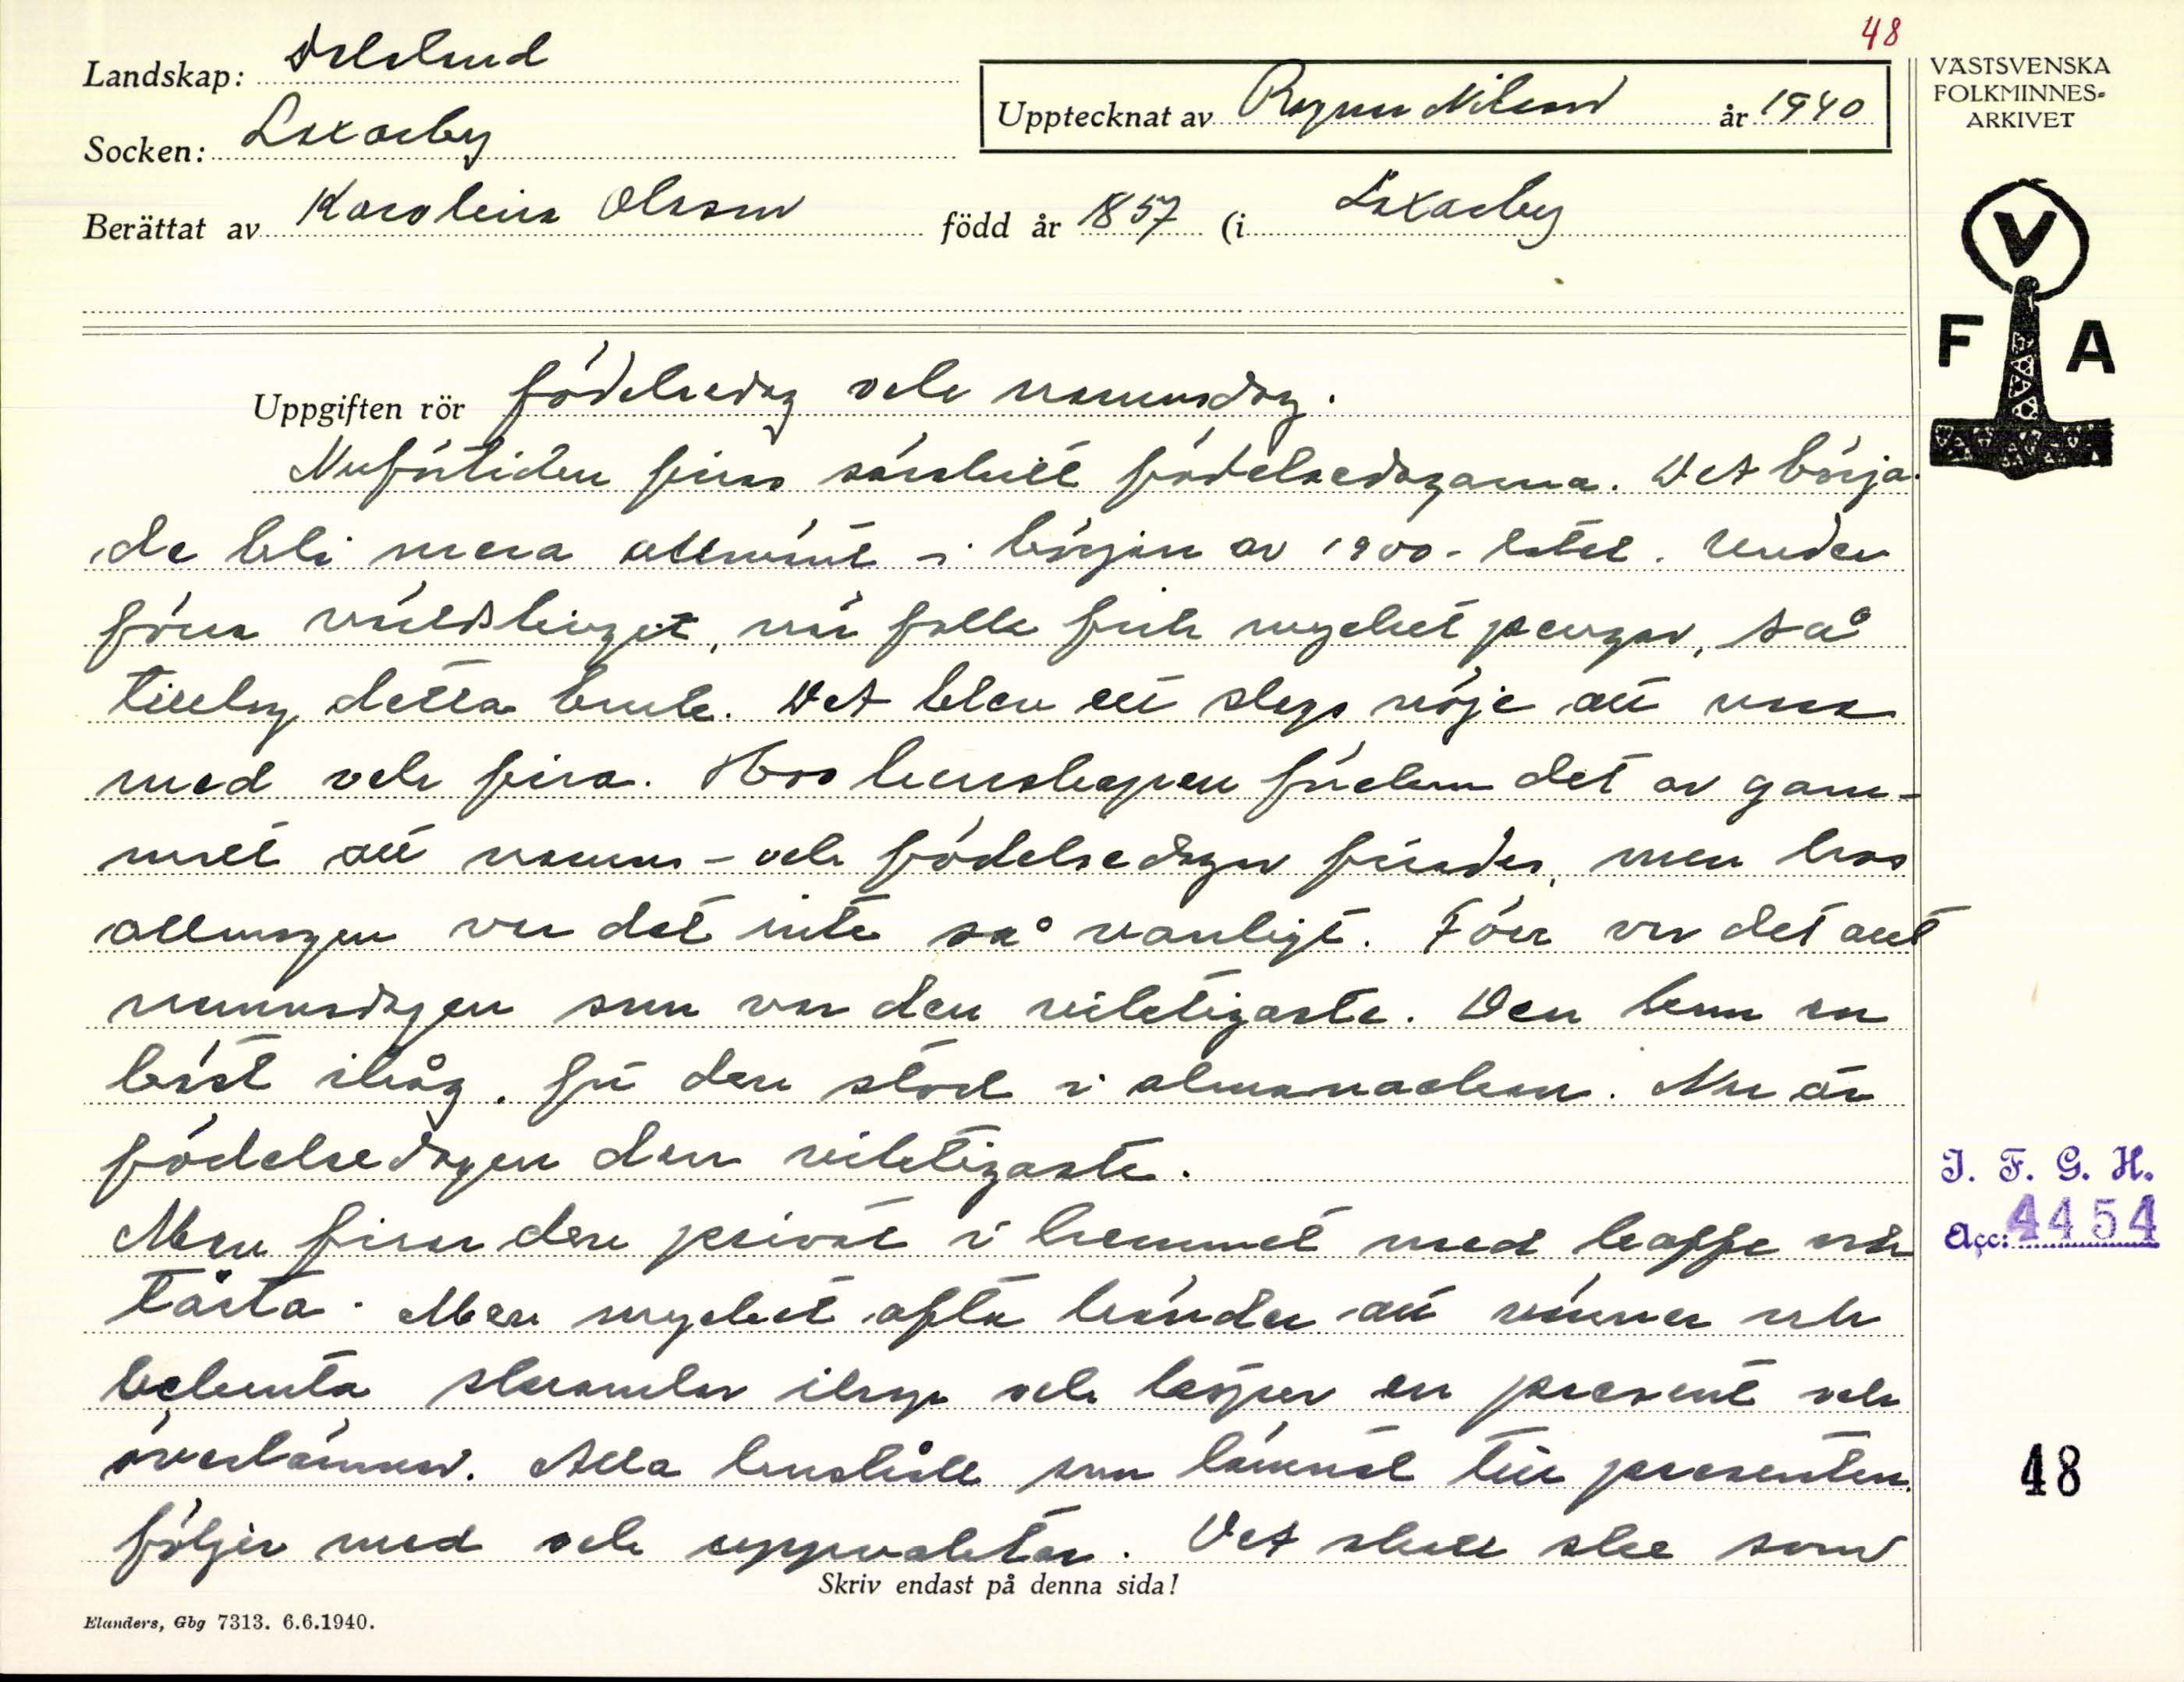 48
Landskap: Dalsland
Socken: Laxarby
Upptecknat av Ragnar Nilsson år 1940
Berättat av Karolina Olsson född år 1857 (i Laxarby
VÄSTSVENSKA
FOLKMINNES-
ARKIVET
V
F A
Uppgiften rör födelsedag och namnsdag.
Nuförtiden firas särskilt födelsedagarna. Det börja-
de bli mera allmänt i början av 1900-talet. Under
förra världskriget, när folk fick mycket pengar, så
tilltog detta bruk. Det blev ett slags nöje att vara
med och fira. Hos herrskapen förekom det av gam-
malt att namns- och födelsedagar firades, men hos
allmogen var det inte så vanligt. Förr var det att
namnsdagen som var den viktigaste. Den kom en
bäst ihåg, för den stod i almanackan. Nu är
födelsedagen den viktigaste.
Man firar den privat i hemmet med kaffe och
tårta. Men mycket ofta händer att vänner och
bekanta skramlar ihop och köper en present och
överlämnar. Alla hushåll som lämnat till presenten,
följer med och uppvaktar. Det skall ske som
Skriv endast på denna sida!
Elanders, Gbg 7313. 6.6.1940.
I. F. G. H.
Acc: 4454
48